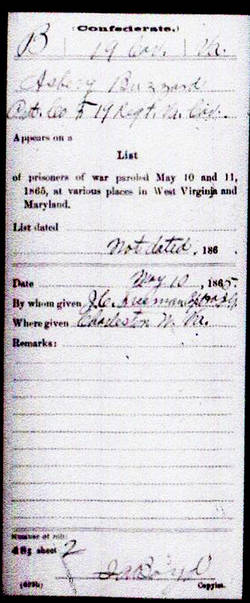 (Confederate.)
B | 19 Cav. | Va.
Asbery Buzzard
Pvt. Co F 19 Regt. Va. Cav.
Appears on a
List
of prisoners of war paroled May 10 and 11,
1865, at various places in West Virginia and
Maryland.
List dated
Not dated, 186
Date May 10, 1865.
By whom given J.C. Freeman
Where given Charleston W. Va.
Remarks:
Number of roll:
sheet 2
Copyist.